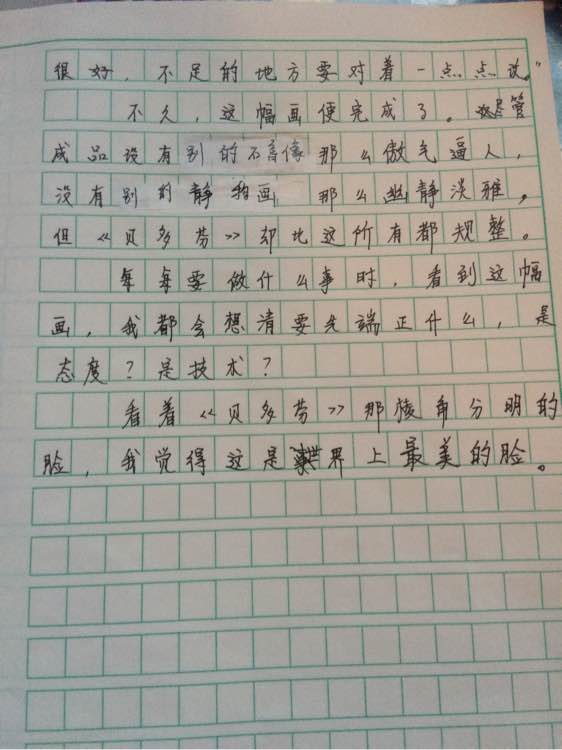 很好，不足的地方要对着一点点改。”
不久，这幅画便完成了。尽管
成品没有别的石膏像那么傲气逼人，
没有别的静物画那么幽静淡雅，
但《贝多芬》却比这所有都规整。
每每要做什么事时，看到这幅
画，我都会想清要先端正什么，是
态度？是技术？
看着《贝多芬》那棱角分明的
脸，我觉得这是世界上最美的脸。